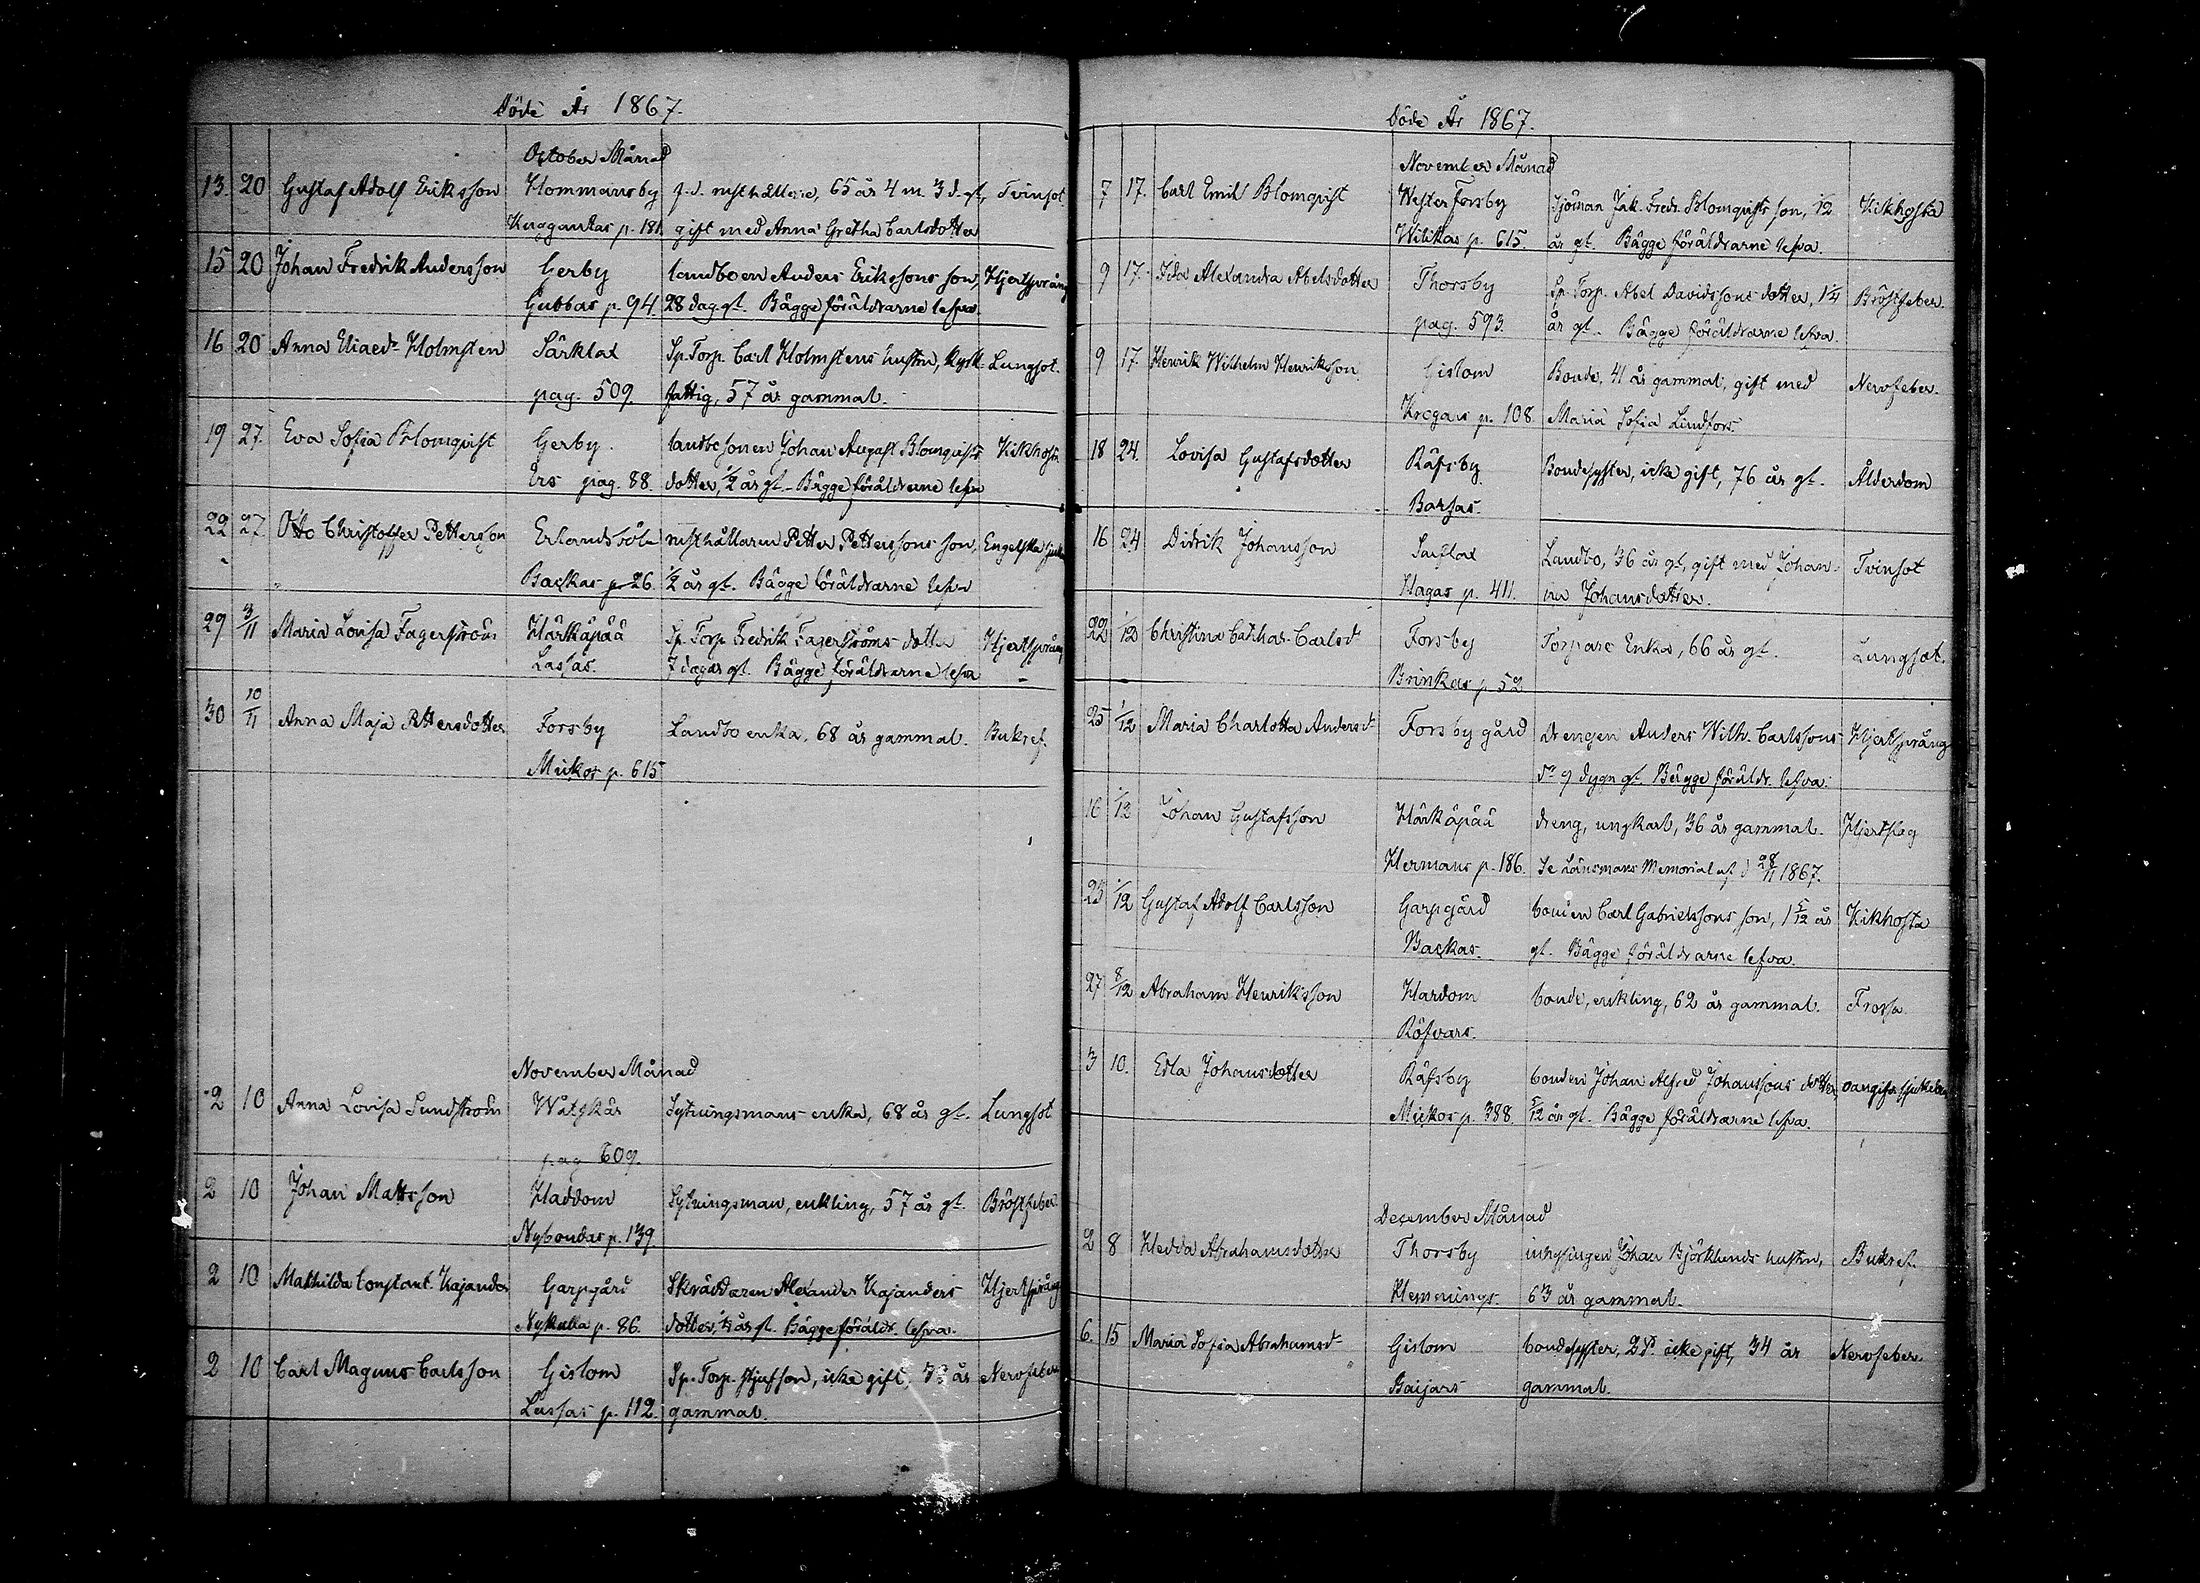 Döde År 1867.
October Månad
13. 20 Gustaf Adolf Eriksson Hommansby f.d. rusthållare, 65 år 4 m. 3 d. gl, Tvinsot
Knaggantas p. 181. gift med Anna Gretha Carlsdotter
15 20 Johan Fredrik Andersson Gerby landboen Anders Erikssons son, Hjertsprång
Gubbas p. 94. 28 dag. gl. Bägge föräldrarne lefva.
16 20 Anna Eliaedr Holmsten Särklax Sp. Torp. Carl Holmstens hustru, kyrk- Lungsot.
pag. 509. fattig, 57 år gammal.
19 27. Eva Sofia Blomqvist Gerby. landbosonen Johan August Blomqvists Kikhosta
Ers pag. 88. dotter, 1/2 år gl. Bägge föräldrarne lefva
22 27. Otto Christoffer Pettersson Erlandsböle rusthållaren Petter Petterssons son, Engelska sjuka
Backas p. 26. 1/2 år gl. Bägge föräldrarne lefva
29 3/11 Maria Lovisa Fagerström Härkäpää Sp. Torp. Fredrik Fagerströms dotter Hjertsprång
Lassas. 7 dagar gl. Bägge föräldrarne lefva
30 10/11 Anna Maja Pettersdotter Forsby Landbo enka, 68 år gammal. Bukref.
Mickos p. 615
November Månad
2 10 Anna Lovisa Sundström Wåtskär Sytningsmans enka, 68 år gl. Lungsot
pag 609.
2 10 Johan Mattsson Haddom Sytningsman, enkling, 57 år gl. Bröstfeber
Nybondas p. 139
2 10 Mathilda Constant. Kajander Garpgård Skräddaren Alexander Kajanders Hjertsprång
Nykulla p. 86. dotter, 1/2 år gl. Bägge föräldr. lefva.
2 10 Carl Magnus Carlsson Gislom Sp. Torp. styfson, icke gift, 33 år Nervfeber
Lassas p. 112. gammal.
Döde År 1867.
November Månad
7 17. Carl Emil Blomqvist Wester Forsby Sjöman Jak. Fredr. Blomqvists son, 12 Kikhosta
Wilikas p. 615. år gl. Bägge föräldrarne lefva.
9 17. Ida Alexandra Abelsdotter Thorsby Sp. Torp. Abel Davidssons dotter, 1 1/4 Bröstfeber.
pag. 593. år gl. Bägge föräldrarne lefva.
9 17. Henrik Wilhelm Henriksson Gislom Bonde, 41 år gammal, gift med Nervfeber.
Krogars p. 108. Maria Sofia Lindfors.
18 24. Lovisa Gustafsdotter Räfsby Bondesyster, icke gift, 76 år gl. Ålderdom
Barsas.
16 24 Didrik Johansson Sarflax Landbo, 36 år gl, gift med Johan- Tvinsot
Hagas p. 411. na Johansdotter.
22 1/12 Christina Cathar. Carlsd Forsby Torpare Enka, 66 år gl. Lungsot.
Brinkas p. 52
25 1/12 Maria Charlotta Andersd Forsby gård Drengen Anders Wilh. Carlssons Hjertsprång
dr 9 dygn gl. Bägge föräldr. lefva.
10 1/12 Johan Gustafsson Härkäpää dreng, ungkarl, 36 år gammal. Hjertslag
Hermans p. 186. Se Länsmans Memorial af d 28/11 1867.
25 1/12 Gustaf Adolf Carlsson Garpgård bonden Carl Gabrielssons son, 1 5/12 år Kikhosta
Backas. gl. Bägge föräldrarne lefva.
27 8/12 Abraham Henriksson Hardom bonde, enkling, 62 år gammal. Frossa
Röfvars.
3 10. Edla Johansdotter Räfsby bonden Johan Alfred Johanssons dotter, oangifven sjukdom
Mickos p. 388. 5/12 år gl. Bägge föräldrarne lefva.
December Månad
2 8 Hedda Abrahamsdotter Thorsby inhysingen Johan Björklunds hustru, Bukref.
Hemmings. 63 år gammal.
6. 15 Maria Sofia Abrahamsd Gislom bondesyster, icke gift, 34 år Nervfeber.
Baijars gammal.